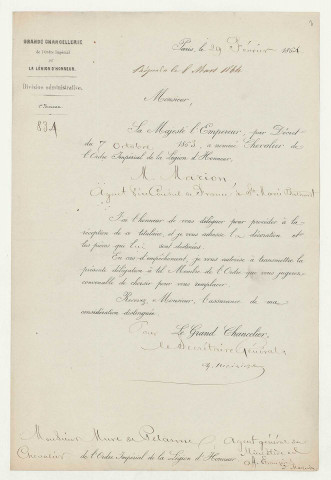 GRANDE CHANCELLERIE
de l'Ordre Impérial
DE
LA LÉGION D'HONNEUR.
Division administrative.
1er Bureau
831
Paris, le 29 Février 1864
Monsieur,
Sa Majesté l'Empereur, par Décret
du 7 Octobre 1863, a nommé Chevalier de
l'Ordre Impérial de la Légion d'Honneur,
M. Marion
Agent de France à Ste Marie
J'ai l'honneur de vous déléguer pour procéder à la
réception de ce titulaire, et je vous adresse la décoration et
les pièces qui lui sont destinées.
En cas d'empêchement, je vous autorise à transmettre la
présente délégation à tel Membre de l'Ordre que vous jugerez
convenable de choisir pour vous remplacer.
Recevez, Monsieur, l'assurance de ma
considération distinguée.
Pour Le Grand Chancelier,
le Secrétaire Général,
Monsieur Mure de Pelanne, Agent général
Chevalier de l'Ordre Impérial de la Légion d'Honneur